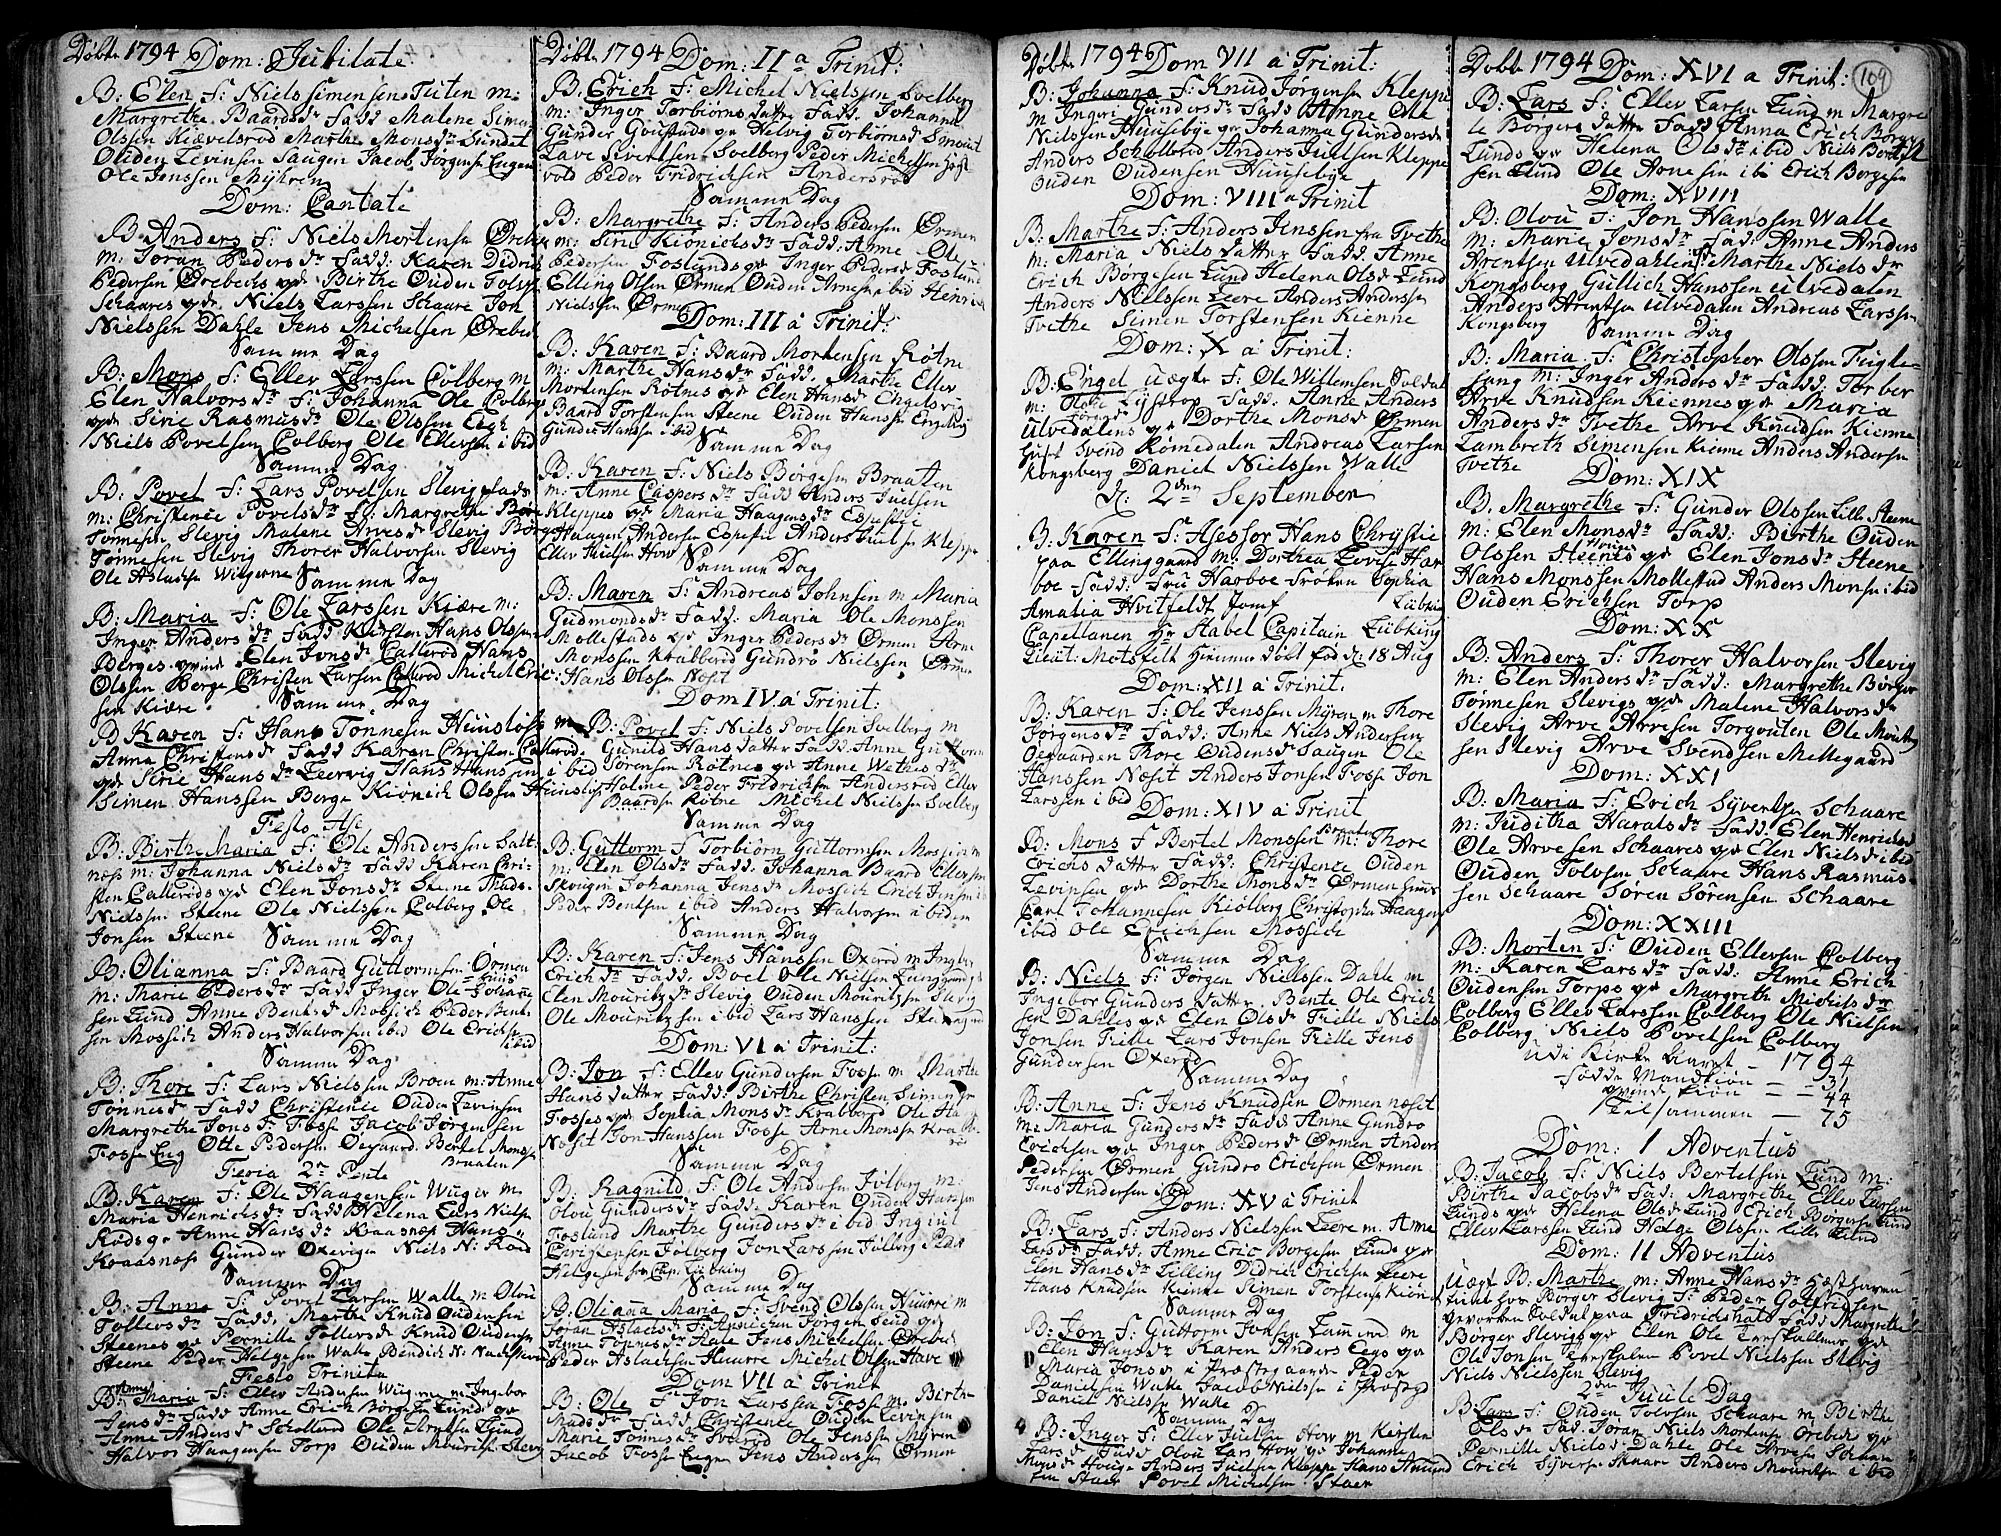 Døbte 1794 Dom: Jubilate
B: Elen F: Niels Simensen Teiten m:
Margrethe Baardsdr Fadd Malene Simen
Olssen Kiævelsrød Marthe Monsdr Sundet
Ouden Levinsen Saugen Jacob Jørgensen Engen
Ole Jenssen Myhren
Dom: Cantate
B: Anders F: Niels Mortensen Ørebek
m: Joran Pedersdr Fadd: Karen Didrik
Pedersen Ørebechs qde Birthe Ouden Tolvs
Schaares qde Niels Larssen Schaare Jon
Nielssen Dahle Jens Michelsen Ørebek
Samme Dag
B: Mons F: Eller Larssen Colberg m
Elen Halvorsdr F: Johanna Ole Colbergs
qde Sirie Rasmusdr Ole Olssen Eeg
Niels Povelsen Colberg Ole Ellevsen ibid
Samme Dag
B: Povel F: Lars Povelsen Slevigstads
m: Christence Povelsdr F: Margrethe Børge
Tønnesen Slevig Malene Arvesdr Slevig Børge
Tønnesen Slevig Thorer Halvorsen Slevig
Ole Aslachsen Wiigerne
Samme Dag
B: Maria F: Ole Larssen Kiære m:
Inger Andersdr Fadd Kirsten Hans Olssen
Berges qvinde Elen Jonsdr Callerød Hans
Olssen Berge Christen Larsen Callerød Michel Erich
sen Kiære
Samme Dag
B Karen F: Hans Tønnesen Huunsløs m
Anna Christensdr Fadd Karen Christen Callerød
qde Sirie Hansdr Leervig Hans Hanssen ibid
Simen Hanssen Berge Kiønich Olssen Huunsløs
Festo Asc
B: Birthe Maria F: Ole Anderssen Salt-
næs m: Johanna Nielsdr Fadd Karen Chri-
sten Callerøds qde Elen Jonsdr Steene Thads
Nielssen Steene Ole Nielssen Colberg Ole
Jonsen Steene
Samme Dag
B: Olianna F: Baard Guttormsen Ørmen
m: Marie Pedersdr Fadd Inger Ole Johanne
sen Lund Anne Bentsdr Mossich Peder Bent-
sen Mossich Anders Halvorsen ibid Ole Erichsen
ibid
Samme Dag
B: Thore F: Lars Nielssen Broen m: Anne
Tønnesdr Fadd Christence Ouden Levinsen
Margrethe Jonsdr Fosse Jacob Jørgensen
Fosse Eng Otte Pedersen Oegaard Bertel Monssen
Braaten
Feria 2a Pente
B: Karen F: Ole Haagensen Wiiger m:
Maria Henrichsdr Fadd Helena Lars Nielsen
Rødsqe Anne Hansdr Kraasnæs Hans
Kraasnæs Gunder Oxevigen Niels N: Rød
Samme Dag
B: Anne F: Povel Larsen Walle m Olou
Tollersdr Fadd: Marthe Knud Oudensen
Steenes qde Pernille Tollersdr Knud Oudensen
Steene Peder Helgesen Walle Bendich N:
Festo Trinita
B: Anne Maria F: Eller Andersen Wiigerne m Ingebor
Jensdr Fadd Anne Erich Børgesen Lunds qv
Anne Andersdr Scholleröd Ole Arntsen Lund
Halvor Haagensen Torp Ouden Mouritsen Slevig
Døbte 1794 Dom: II a Trinit:
B: Erich F: Michel Nielssen Svelberg
m: Inger Torbiørns datter Fadd. Johanna
Gunder Goustads qe Helvig Torbiørnsdr Smout
Tave Sivertsen Svelberg Peder Michelsen Høist
vold Peder Fridrichsen Andersrød
Samme Dag
B: Margrethe F: Anders Pedersen Ørmen
m: Siri Kiønichsdr Fadd. Anne Ole
Pedersen Foslunds qe Inger Pedersdr Foslund
Elling Olsen Ørmen Ouden Arnesen ibid Heinrich
Nielssen Ørmen
Dom: III a Trinit:
B: Karen F: Baard Mortensen Røtne
m: Marthe Hansdr Fadd. Marthe Eller
Mortensen Rötnes qe Elen Hansdr Engelsvi-
Baard Torstensen Steene Ouden Hanssen Engelsvig
Gunder Hanssen ibid
Samme Dag
B: Karen F: Niels Børgesen Braaten
m: Anne Caspersdr Fadd Anders Juelsen
Kleppes qe Maria Haagensdr Espesiie
Haagen Andersen Espesiie Anders Juelsen Kleppe
Eller Juelsen How
Samme Dag
B: Maren F: Andreas Johnsen m Maria
Gudmondsdr Fadd: Maria Ole Monssen
Mollestads qe Inger Pedersdr Ørmen Arne
Monssen Krabberød Gundro Nielssen Ørmen
Hans Olssen Næst
Dom IV a Trinit:
B: Povel F: Niels Povelsen Svelberg m
Gunild Hans datter Fadd: Anne Guttorm
Sørensen Rötnes qe Anne Wethesdr
Holme Peder Fridrichsen Andersrød Eller
Baardsen Røtne Michel Nielssen Svelberg
Samme Dag
B: Guttorm F Torbiørn Guttormsen Mossich m
m: Elen Olsdr Fadd: Johanna Baard Ellevsen
Skougen Johanna Jensdr Mossich Erich Jensen ibid
Peder Bentsen ibid Anders Halvorsen ibidem
Samme Dag
B: Karen F: Jens Hanssen Oxerød m Ingbor
Erichsdr Fadd: Boel Ole Nielsen Lunggaards
Elen Mouritzdr Slevig Ouden Mouritzsen Slevig
Ole Mouritzsen ibid Lars Hanssen
Dom: VI a Trinit:
B: Jon F: Eller Gundersen Fosse m Marthe
Hans datter Fadd: Birthe Christen Simensen
Fosses qde Sophia Monsdr Krabberød Ole Hans
Næst Jon Hanssen Fosse Arne Monssen Krabbe-
rød
Samme Dag
B: Ragnild F: Ole Andersen Jølberg m:
Olou Gundersdr Fadd: Karen Gunder Hanssen
Foslund Marthe Gundersdr ibid Ingier
Christensen Jölberg Jon Larssen Jölberg Peder
Helgesen fra Cap: Lübking
Samme Dag
B: Olianna Maria F: Svend Olssen Huurre m
Joran Aslachsdr F: Annichen Jørgen Seud qde
Anne Tønnesdr Hale Jens Michelsen Ørebek
Peder Aslachsen Huurre Michel Olsen Have
Dom VII a Trinit
B: Ole F Jon Larssen Fosse m: Birthe
Madsdr Fadd Christence Ouden Levinsen
Marie Tønnesdr Svarød Ole Jenssen Myren
Jacob Fosse Engen Jens Anderssen Ørmen
Døbte 1794 Dom VII a Trinit:
B: Johanna F: Knud Jørgensen Kleppe
m Inger Gundersdr Fadd Anne Ole
Nielssen Huusebye qe Johanna Gundersdr
Anders Scholleröd Anders Juelsen Kleppe
Ouden Oudensen Huusebye
Dom: VIII a Trinit
B: Marthe F: Anders Jenssen fra Tvethe
m: Maria Niels datter Fadd: Anne
Erich Børgesen Lund Helena Olsdr Lund
Anders Nielssen Leere Anders Andersen
Tvethe Simen Torstensen Kienne
Dom: X a Trinit:
B: Engel uægte F: Ole Willemsen Soldat
m: Olobe Lystrop Fadd: Anne Anders
Ulvedalens qe Dorthe Monsdr Ørmen
Huset Svend Römedalen Andreas Larsen
Kongsberg Daniel Nielssen Walle
d: 2den September
B: Karen F: Asessor Hans Chrystie
paa Ellinggaard m: Dorthea Lovise Har
boe Fadd: Fru Harboe Frøken Sophia
Amalia Hvitfeldt Jomf Lübking
Capellanen Hr Stabel Capitain Lübking
Lieut: Motzfelt Hiemme døbt fød d: 18 Aug
Dom: XII a Trinit:
B: Karen F: Ole Jenssen Myren m Thore
Jørgensdr Fadd: Anne Niels Andersen
Oegaarden Thore Oudensdr Saugen Ole
Hanssen Næset Anders Jonsen Fosse Jon
Larssen ibid
Dom: XIV a Trinit
B: Mons F Bertel Monssen Braaten m: Thore
Erichs datter Fadd: Christence Ouden
Levinsen qde Dorthe Monsdr Ørmen huus
Carl Johannesen Kiølberg Christopher Haagens
ibid Ole Erichsen Mossich
Samme Dag
B: Niels F: Jørgen Nielssen Dahle m
Ingebor Gunders datter. Bente Ole Erich
sen Dahles qe Elen Olsdr Trille Niels
Jonsen Trille Lars Jonsen Trille Jens
Gundersen Oxerød
Samme Dag
B: Anne F: Jens Knudsen Ørmen næset
m: Maria Gundersdr Fadd Anne Gundro
Erichsen qe Inger Pedersdr Ørmen Anders
Pedersen Ørmen Gundro Erichsen Ørmen
Jens Andersen ibid
Dom: XV a Trinit
B: Lars F: Anders Nielssen Leere m: Anne
Larsdr Fadd: Anne Eric Børgesen Lunds qe
Elen Hansdr Lilling Didrich Erichsen Leere
Hans Knudsen Kienne Simen Torstensen Kienne
Samme Dag
B: Jon F: Guttorm Jonsen Lunnerød m
Elen Hansdr Karen Anders Eegs qe
Maria Jonsdr i Præstegaarden Peder
Danielsen Walle Jacob Nielsen i Præstgd
Daniel Nielssen Walle
Samme Dag
B: Inger F: Eller Juelsen How m Kirsten
Larsdr Fadd Olou Lars How qe Johanne
Monsdr Houge Anders Juelsen Kleppe Hans Amund
sen Staer Povel Michelsen Staer
Døbte 1794 Dom: XVI a Trinit: 109
B: Lars F: Eller Larsen Lund m Margre
te Børges datter Fadd Anna Erich Børges
Lunds qe Helena Olsdr ibid Niels Bertel
sen Lund Ole Arnesen ibi Erich Børgesen
Dom: XVIII
B: Olou F: Jon Hanssen Walle
m: Maria Jonsdr Fad: Anne Anders
Arentsen Ulvedahlen qe Marthe Nielsdr
Kongsberg Gullich Hanssen Ulvedalen
Anders Arentsen Ulvedalen Andreas Larssen
Kongsberg
Samme Dag
B: Maria F: Christopher Olssen Fugle-
sang m: Inger Andersdr Fadd: Torber
Arve Knudsen Kiennes qe Maria
Andersdr Tvethe Arve Knudsen Kienne
Lambreth Simensen Kienne Anders Andersen
Tvethe
Dom: XIX
B. Margrethe F: Gunder Olssen Lille Steene
m: Elen Monsdr Fadd: Birthe Ouden
Olssen Steenes qe Elen Jonsdr Steene
Hans Monssen Mollestad Anders Monsen ibid
Ouden Erichsen Torp
Dom: XX
B: Anders F: Thorer Halvorsen Slevig
m: Elen Andersdr Fadd: Margrethe Børger
Tønnesen Slevigs qde Malene Halvorsdr
Slevig Arve Arvesen Torgouten Ole Mourit
sen Slevig Arve Svendsen Mellegaard
Dom: XXI
B: Maria F: Erich Syversen Schaare
m: Juditha Haraldsdr Fadd: Elen Henrichsdr
Ole Arvesen Schaares qe Elen Nielsdr ibid
Ouden Tolvsen Schaare Hans Rasmus-
sen Schaare Søren Sørensen Schaare
Dom: XXIII
B: Morten F: Ouden Ellevsen Colberg
m: Karen Larsdr Fadd: Anne Erich
Oudensen Torps qe Margreth Michelsdr
Colberg Eller Larssen Colberg Ole Nielsen
Colberg Niels Povelsen Colberg
Udi Kirke Aaret 1794
Fødde Mandkiøn — — 31
qvinde kiøn — — 44
Tilsammen — 75
Dom: 1 Adventus
B: Jacob F: Niels Bertelsen Lund m:
Birthe Jacobsdr Fad: Margrethe Eller Larsen
Lunds qe Helena Olsdr Lund Erich Børgesen Lund
Eller Larssen Lund Helge Olssen Lille Lund
Dom: II Adventus
Uægt B: Marthe m: Anne Hansdr
tient hos Børger Slevig F: Peder Gotfridsen
gevorben Soldat paa Fridrichshald Fadd Margrethe
Børger Slevigs qe Elen Ole qde
Ole Jonsen Povel Nielssen Slevig
Niels Nielssen Slevig
2den Juule Dag
B: Lars F: Ouden Tolvsen Schaare m: Birthe
Olsdr Fad: Joran Niels Mortensen Ørebek qe
Pernille Nielsdr Dahle Ole Arvesen Schaare
Erich Syversen Skaare Anders Mouritsen ibid